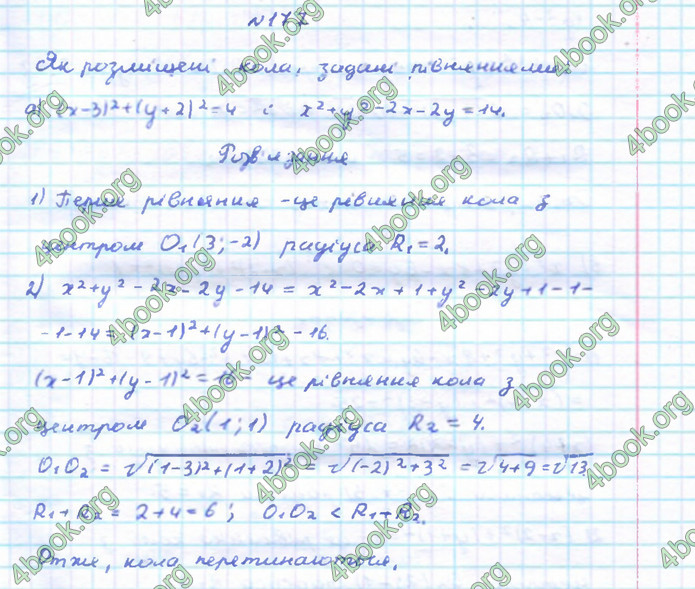 № 177
Як розміщені кола, задані рівняннями:
а) (x-3)²+(y+2)²=4 і x²+y²-2x-2y=14.
Розв'язання
1) Перше рівняння - це рівняння кола з
центром O₁(3;-2) радіуса R₁=2.
2) x²+y²-2x-2y-14 = x²-2x+1+y²-2y+1-1-
-1-14 = (x-1)²+(y-1)²-16.
(x-1)²+(y-1)²=16 - це рівняння кола з
центром O₂(1;1) радіуса R₂=4.
O₁O₂ = √(1-3)²+(1+2)² = √(-2)²+3² = √4+9 = √13.
R₁+R₂ = 2+4=6; O₁O₂ < R₁+R₂.
Отже, кола перетинаються.
4book.org